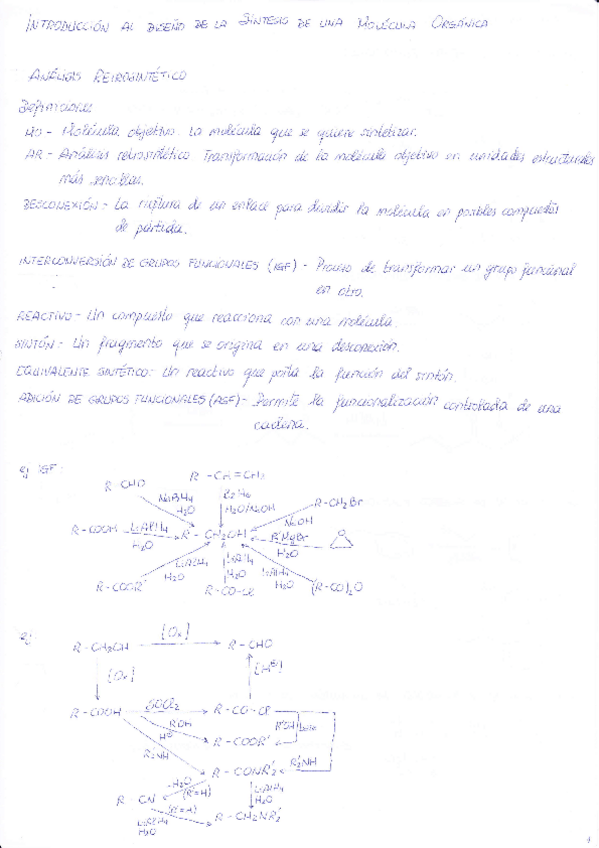 INTRODUCCIÓN AL DISEÑO DE LA SÍNTESIS DE UNA MOLÉCULA ORGÁNICA
ANÁLISIS RETROSINTÉTICO
Definiciones
MO - Molécula objetivo. La molécula que se quiere sintetizar.
AR - Análisis retrosintético. Transformación de la molécula objetivo en unidades estructurales
más sencillas.
DESCONEXIÓN - La ruptura de un enlace para dividir la molécula en posibles compuestos
de partida.
INTERCONVERSIÓN DE GRUPOS FUNCIONALES (IGF) - Proceso de transformar un grupo funcional
en otro.
REACTIVO - Un compuesto que reacciona con una molécula.
SINTÓN: Un fragmento que se origina en una desconexión.
EQUIVALENTE SINTÉTICO: Un reactivo que porta la función del sintón.
ADICIÓN DE GRUPOS FUNCIONALES (AGF) - Permite la funcionalización controlada de una
cadena.
ej IGF:
R-CHO
R-CH=CH2
NaBH4
H2O
B2H6
H2O/NaOH
R-CH2Br
NaOH
R-COOH
LiAlH4
H2O
R-CH2OH
R'MgBr
H2O
O
LiAlH4
H2O
LiAlH4
H2O
LiAlH4
H2O
R-COOR'
R-CO-Cl
(R-CO)2O
ej:
R-CH2OH
[Ox]
R-CHO
[Ox]
R-COOH
SOCl2
R-CO-Cl
ROH
H⊕
R'OH
R-COOR'
R2'NH
R2'NH
R-CONR2'
-H2O
(R'=H)
LiAlH4
H2O
R-CN
(R'=H)
LiAlH4
H2O
R-CH2NR2'
1